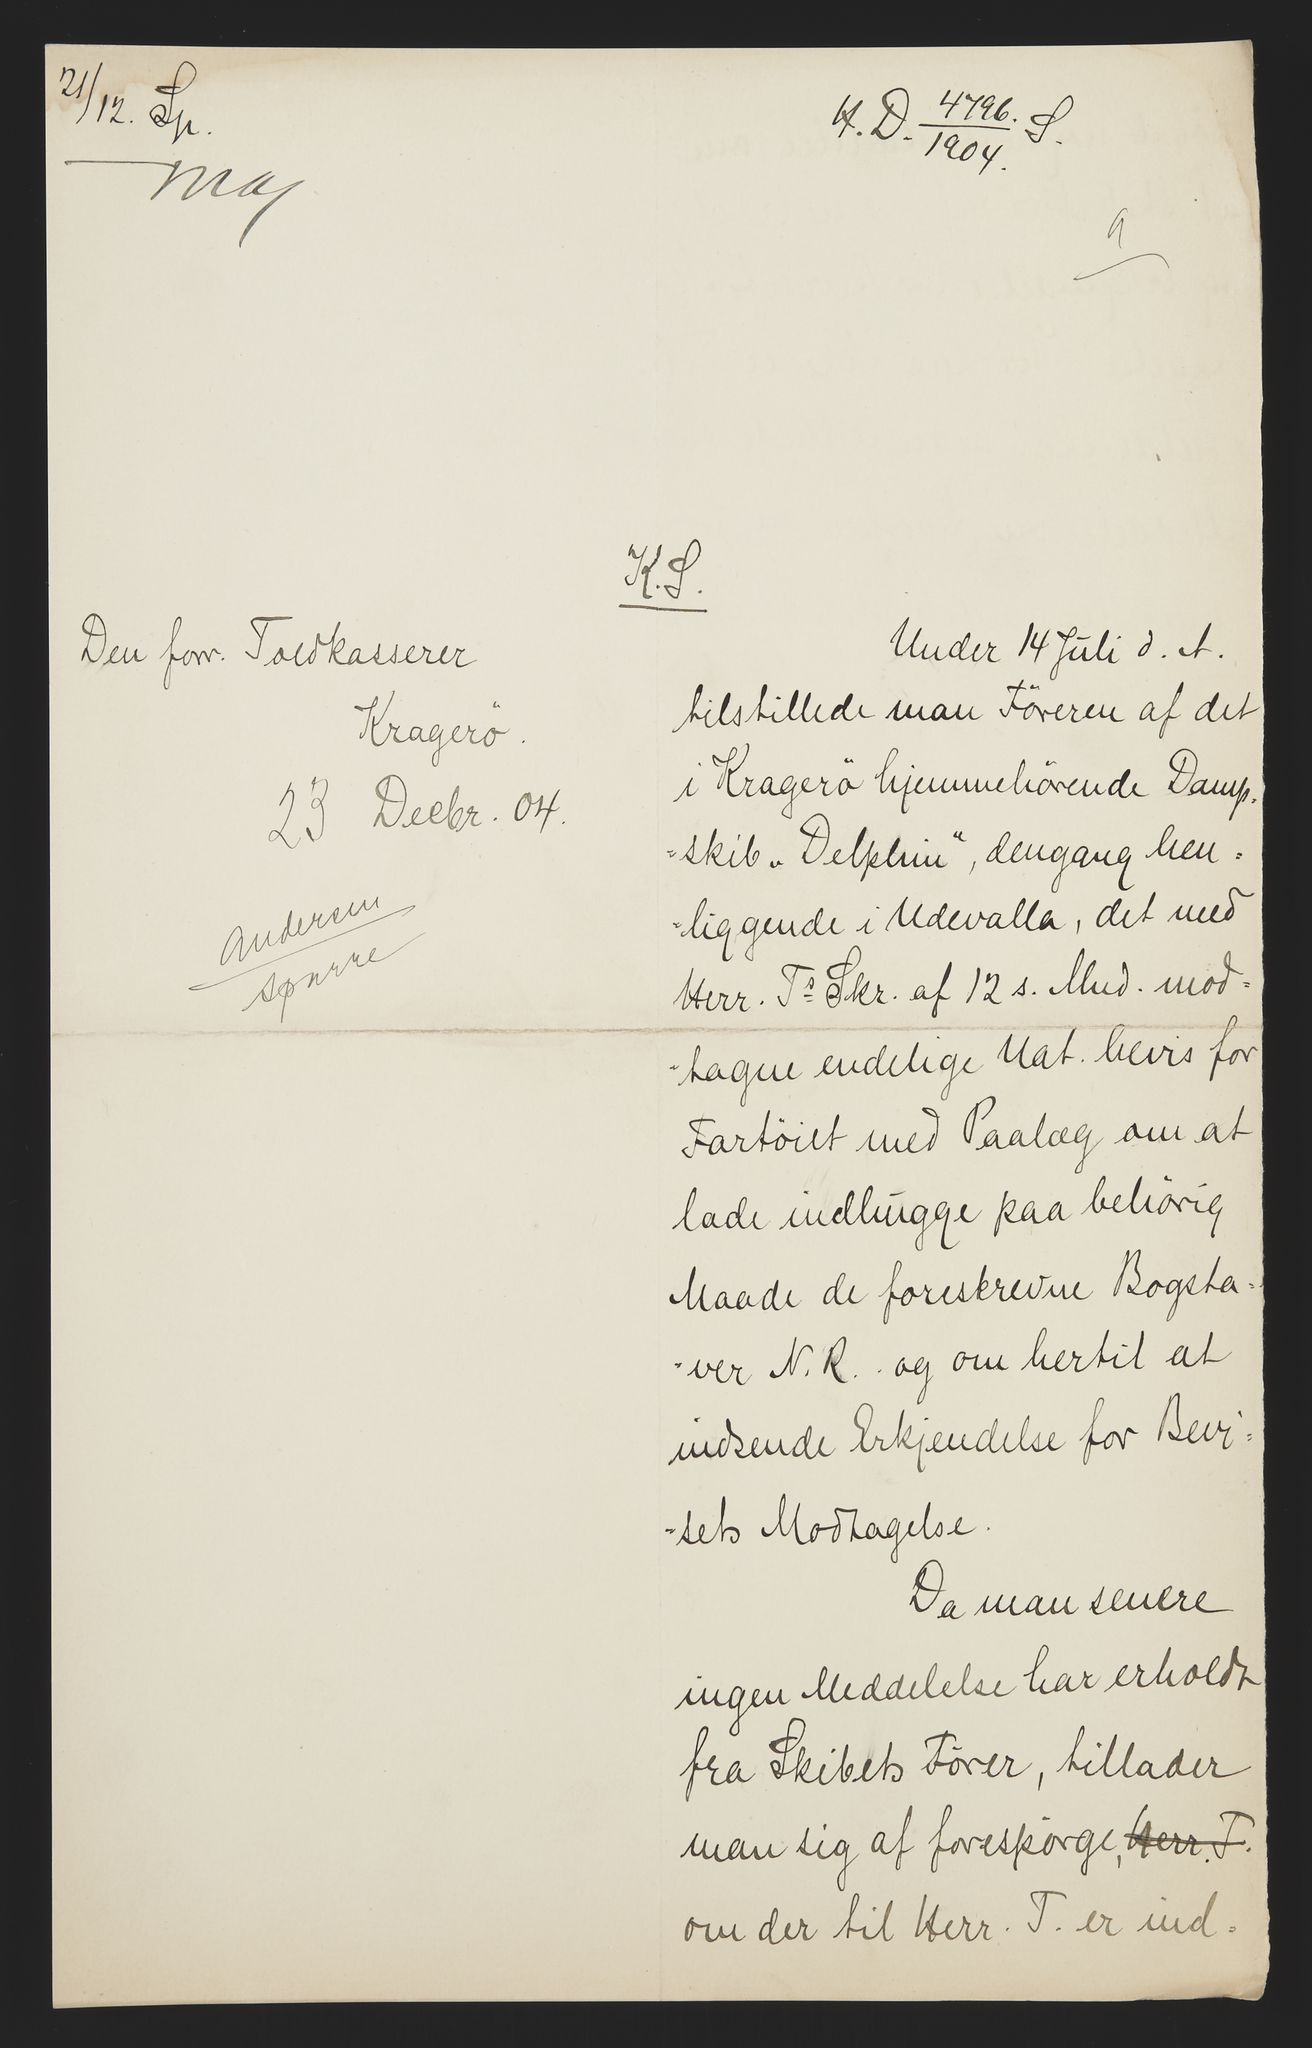 21/12. Sp.
H. D. 4796. S.
1904.
K.S.
Den forr. Toldkasserer
Kragerö.
23 Decbr. 04.
Andersen
Sparre
Under 14 Juli d. A.
tilstillede man Föreren af det
i Kragerö hjemmehörende Damp-
-skib "Delphin", dengang hen-
-liggende i Udevalla, det med
Herr. Ts Skr. af 12 s. Mnd. mod-
-tagne endelige Nat. bevis for
Fartöiet med Paalæg om at
lade indhugge paa behörig
Maade de foreskrevne Bogsta-
-ver N.R. og om hertil at
indsende Erkjendelse for Bevi-
-sets Modtagelse.
Da man senere
ingen Meddelelse har erholdt
fra Skibets Förer, tillader
man sig af forespörge, Herr. T.
om der til Herr. T. er ind-